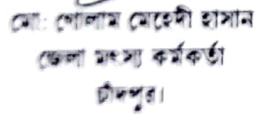 মো: গোলাম মেহেদী হাসান
জেলা মৎস্য কর্মকর্তা
চাঁদপুর।